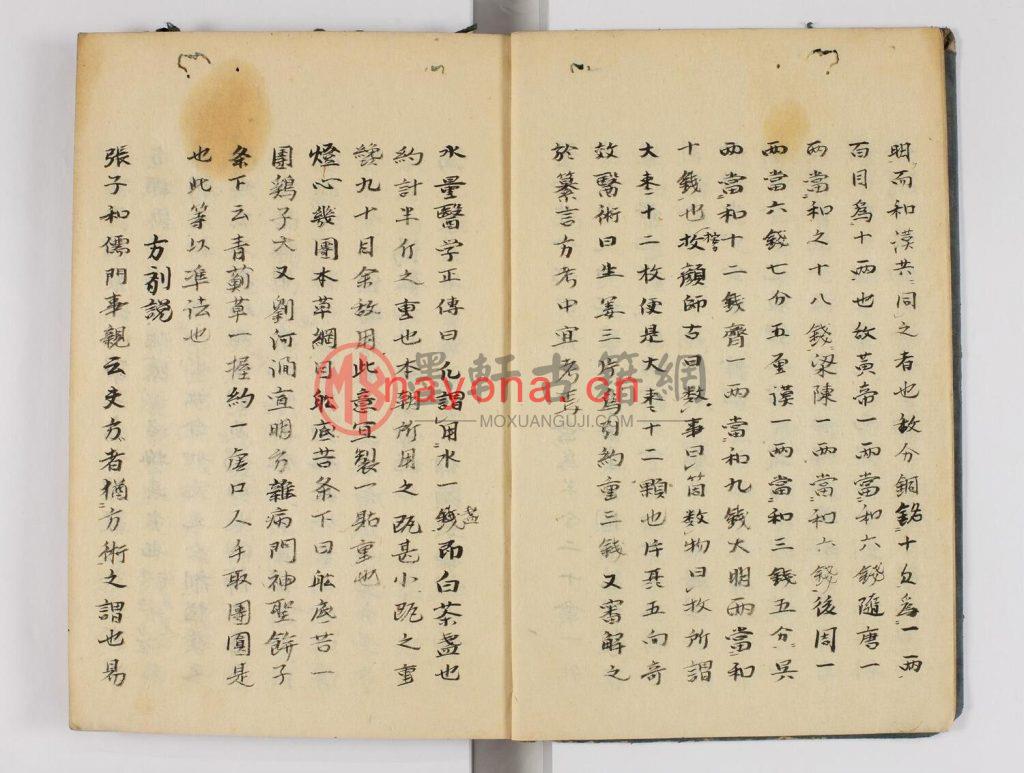 明而和漢共同之者也故分銅銘十匁為一両
百目為十両也故黄帝一両當和六錢隨唐一
両當和之十八錢梁陳一両當和六錢後周一
両當六錢七分五厘漢一両當和三錢五分呉
両當和十二錢齊一両當和九錢大明両當和
十錢也枚顔師古曰数事曰箇数物曰枚所謂
大枣十二枚便是大枣十二顆也片 五向奇
效醫術曰生姜三片為 約重三錢又審解之
於纂言方考中宜考
水量醫学正傳曰凡謂用水一盞即白茶盞也
約計半斤之重也本朝所用之 甚小 之重
幾九十目余故用此意宜製一貼重也
燈心幾團本草綱目舩底苦条下曰舩底苦一
團鷄子大又劉河澗宣明方雜病門神聖餅子
条下云青薊草一握約一虎口人手取團圓是
也此等以準法也
方剤説
張子和儒門事親云夫方者猶方術之謂也易
墨軒古籍網
nayona.cn
MOXUANGUJI.COM